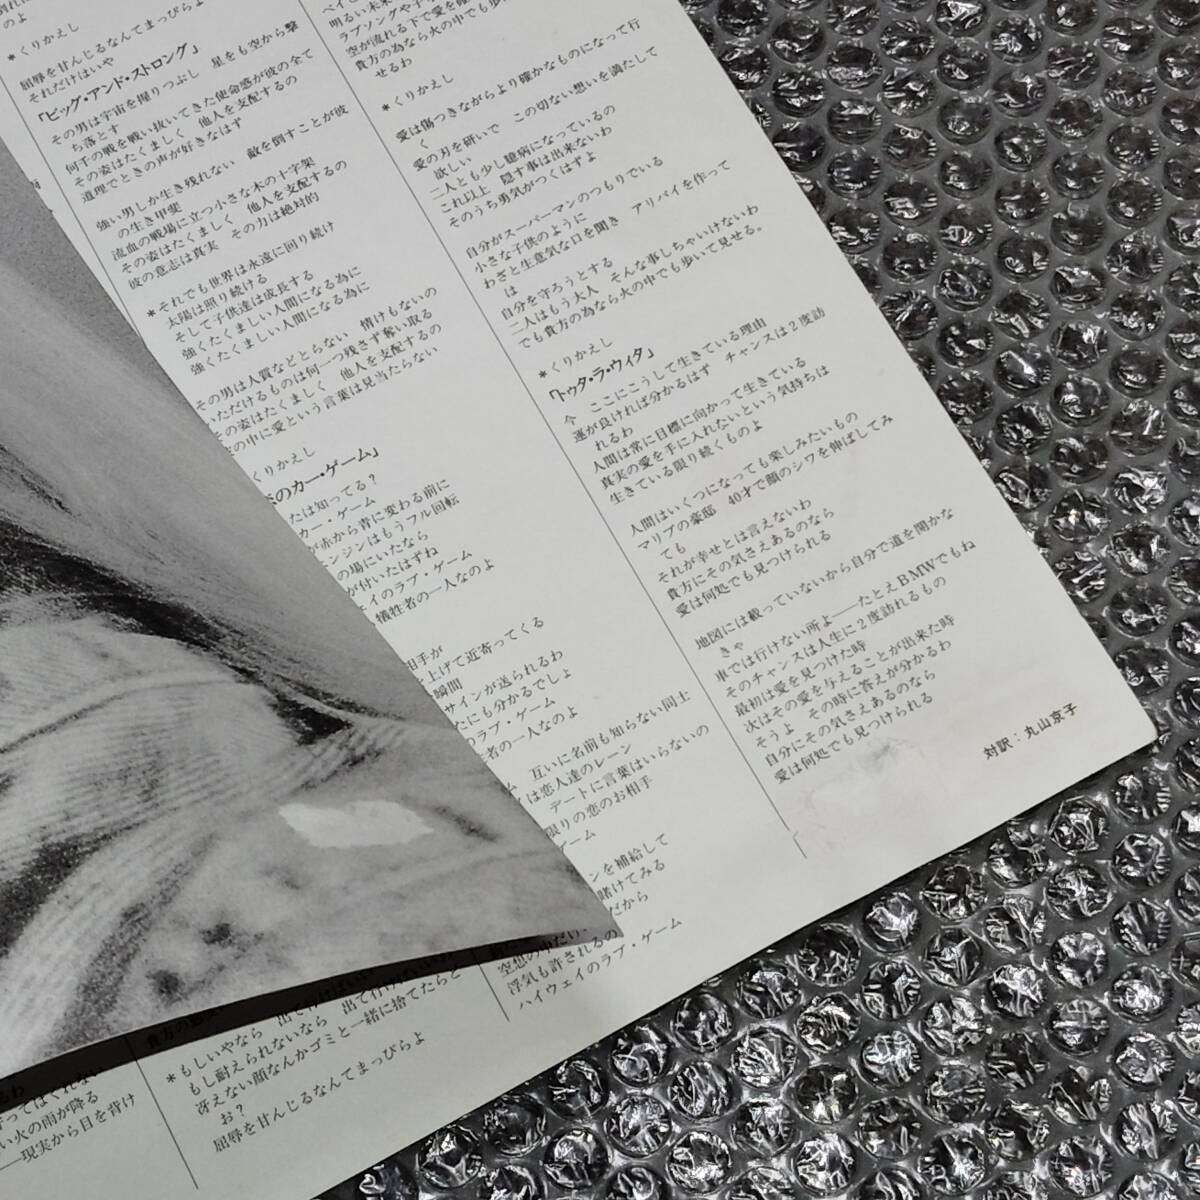 *くりかえし
屈辱を甘んじるなんてまっぴらよ
それだけはいや
「ビッグ・アンド・ストロング」
その男は宇宙を握りつぶし　星をも空から撃
ち落とす
何千の戦を戦い抜いてきた使命感が彼の全て
その姿はたくましく　他人を支配するの
道理でときの声が好きなはず
強い男しか生き残れない　敵を倒すことが彼
の生き甲斐
流血の戦場に立つ小さな木の十字架
その姿はたくましく　他人を支配するの
彼の意志は真実　その力は絶対的
*それでも世界は永遠に回り続け
太陽は照り続ける
そして子供達は成長する
強くたくましい人間になる為に
強くたくましい人間になる為に
その男は人質などとらない　情けもないの
いただけるものは何一つ残さず奪い取る
その姿はたくましく　他人を支配するの
の中に愛という言葉は見当たらない
くりかえし
のカー・ゲーム」
たは知ってる？
カー・ゲーム
が赤から青に変わる前に
ンジンはもうフル回転
の場にいたなら
が付いたはずね
ェイのラブ・ゲーム
犠牲者の一人なのよ
相手が
上げて近寄ってくる
瞬間
サインが送られるわ
たにも分かるでしょ
ラブ・ゲーム
者の一人なのよ
互いに名前も知らない同士
は恋人達のレーン
デートに言葉はいらないの
限りの恋のお相手
ゲーム
ンを補給して
賭けてみる
だから
空想の中だい
浮気も許されるの
ハイウェイのラブ・ゲーム
明るい未来
ラブソングや子
空が流れる下で愛を
貴方の為なら火の中でも歩
せるわ
*くりかえし
愛は傷つきながらより確かなものになって行
く
愛の刃を研いで　この切ない想いを満たして
欲しい
二人とも少し臆病になっているの
これ以上　隠す事は出来ないわ
そのうち勇気がつくはずよ
自分がスーパーマンのつもりでいる
小さな子供のように
わざと生意気な口を聞き　アリバイを作って
は
自分を守ろうとする
二人はもう大人　そんな事しちゃいけないわ
でも貴方の為なら火の中でも歩いて見せる。
*くりかえし
「トゥタ・ラ・ウィタ」
今　ここにこうして生きている理由
運が良ければ分かるはず　チャンスは2度訪
れるわ
人間は常に目標に向かって生きている
真実の愛を手に入れたいという気持ちは
生きている限り続くものよ
人間はいくつになっても楽しみたいもの
マリブの豪邸　40才で顔のシワを伸ばしてみ
ても
それが幸せとは言えないわ
貴方にその気さえあるのなら
愛は何処でも見つけられる
地図には載っていないから自分で道を開かな
きゃ
車では行けない所よ――たとえBMWでもね
そのチャンスは人生に2度訪れるもの
最初は愛を見つけた時
次はその愛を与えることが出来た時
そうよ　その時に答えが分かるわ
自分にその気さえあるのなら
愛は何処でも見つけられる
対訳：丸山京子
*もしいやなら　出て行けばいい
もし耐えられないなら　出て行けばいい
冴えない顔なんかゴミと一緒に捨てたらと
お？
屈辱を甘んじるなんてまっぴらよ
い火の雨が降る
――現実から目を背け